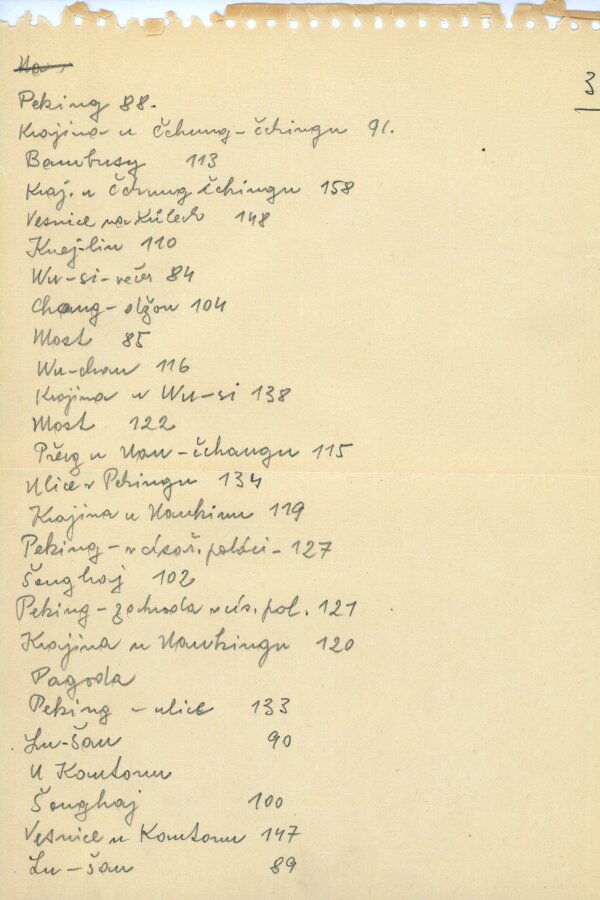 3
Peking 88.
Krajina u Čchung-čchingu 91.
Bambusy 113
Kraj. u Čchung čchingu 158
Vesnice na kůlech 148
Kuej-lin 110
Wu-si-večer 84
Chang-džou 104
Most 85
Wu-chan 116
Krajina u Wu-si 138
Most 122
Přeg u Nan-čchangu 115
Ulice v Pekingu 134
Krajina u Nankinu 119
Peking - v císař. paláci - 127
Šanghaj 102
Peking - zahrada v cís. pal. 121
Krajina u Nankingu 120
Pagoda
Peking - ulice 133
Lu-šan 90
U Kantonu
Šanghaj 100
Vesnice u Kantonu 147
Lu-šan 89